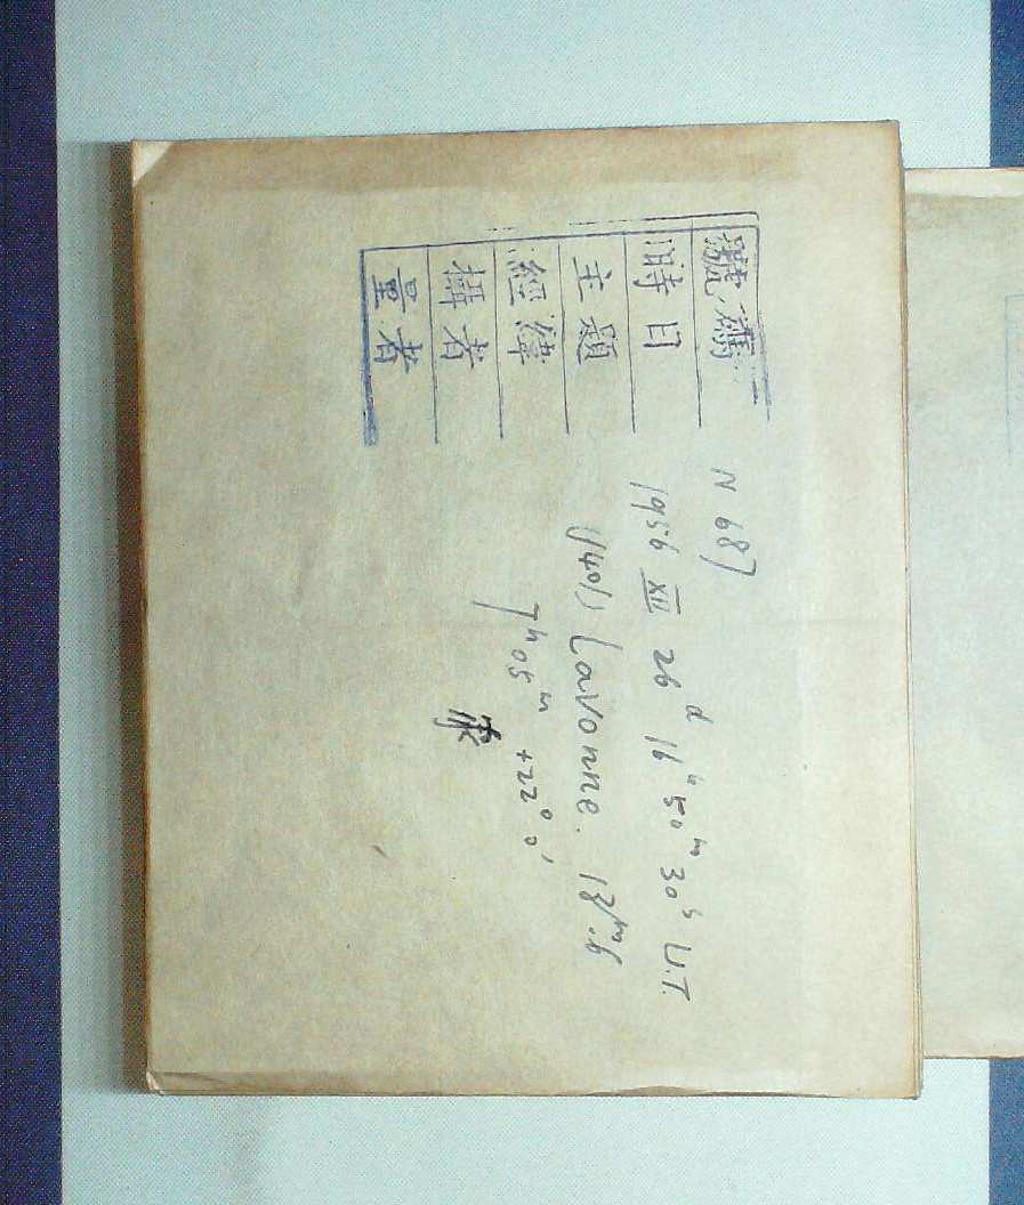 N 687
時日 1956 XII 26ᵈ 16ʰ 50ᵐ 30ˢ U.T.
主題 (1401) Lavonne. 13ᵐ.6
經緯 7ʰ05ᵐ +22° 0'
攝者
量者